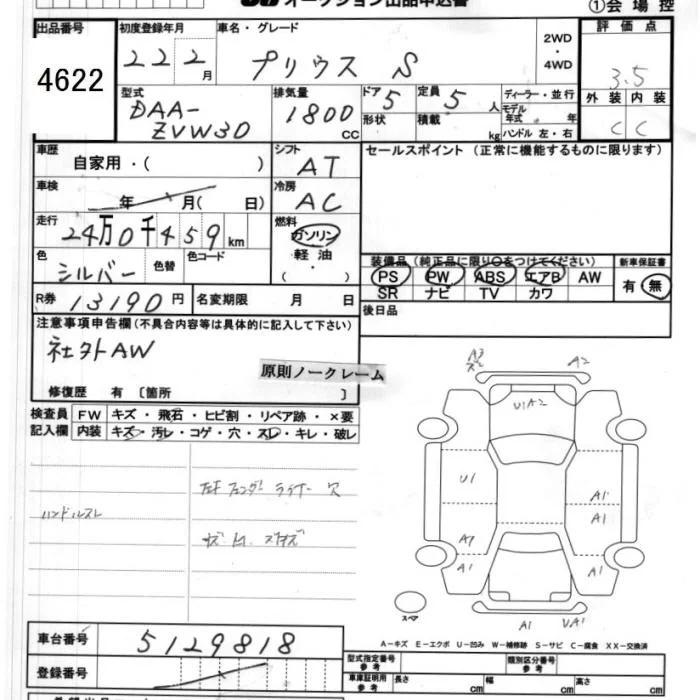 オークション出品申込書
①会場控
出品番号
4622
初度登録年月
22 2月
車名・グレード
プリウス S
2WD・4WD
評価点
3.5
外装 内装
C C
型式
DAA-ZVW30
排気量
1800cc
ドア 5
形状
定員 5人
積載 kg
ディーラー・並行
モデル年式 年
ハンドル 左・右
車歴
自家用・( )
シフト
AT
セールスポイント (正常に機能するものに限ります)
車検
年 月( 日)
冷房
AC
走行
24万0千459km
燃料
ガソリン
軽油
・( )
色
シルバー
色替
色コード
装備品 (純正品に限り○をつけてください)
PS PW ABS エアB AW
SR ナビ TV カワ
新車保証書
有・無
R券 13190円
名変期限 月 日
後日品
注意事項申告欄(不具合内容等は具体的に記入して下さい)
社外AW
原則ノークレーム
修復歴 有 〔箇所 〕
検査員記入欄
FW キズ・飛石・ヒビ割・リペア跡・×要
内装 キズ・汚レ・コゲ・穴・スレ・キレ・破レ
ハンドルスレ
左F フェンダー ライナー 穴
A3
A2
U1A2
U1
A1
A1
A1
A1
A1
A1
UA1
スペア
A-キズ E-エクボ U-凹み W-補修跡 S-サビ C-腐食 XX-交換済
車台番号
5129818
登録番号
型式指定番号
参考
類別区分番号
参考
車庫証明用
参考
長さ cm 幅 cm 高さ cm